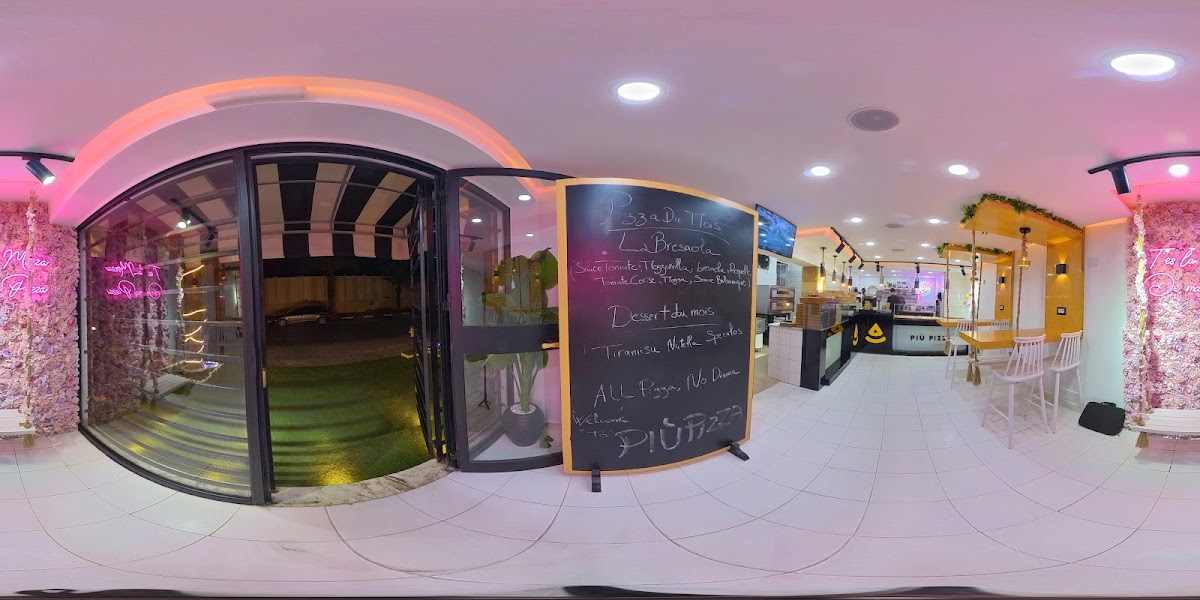 Pizza Du Mois
La Bresaola
(Sauce Tomate, Mozzarella, bresaola, Roquette
Tomate Cerise, Sauce Balsamique)
Dessert du mois
Tiramisu Nutella Speculos
ALL Pizza, No Drama
Welcome
To PIÙ PIZZA
PIÙ PIZZ
T'es la
De ma